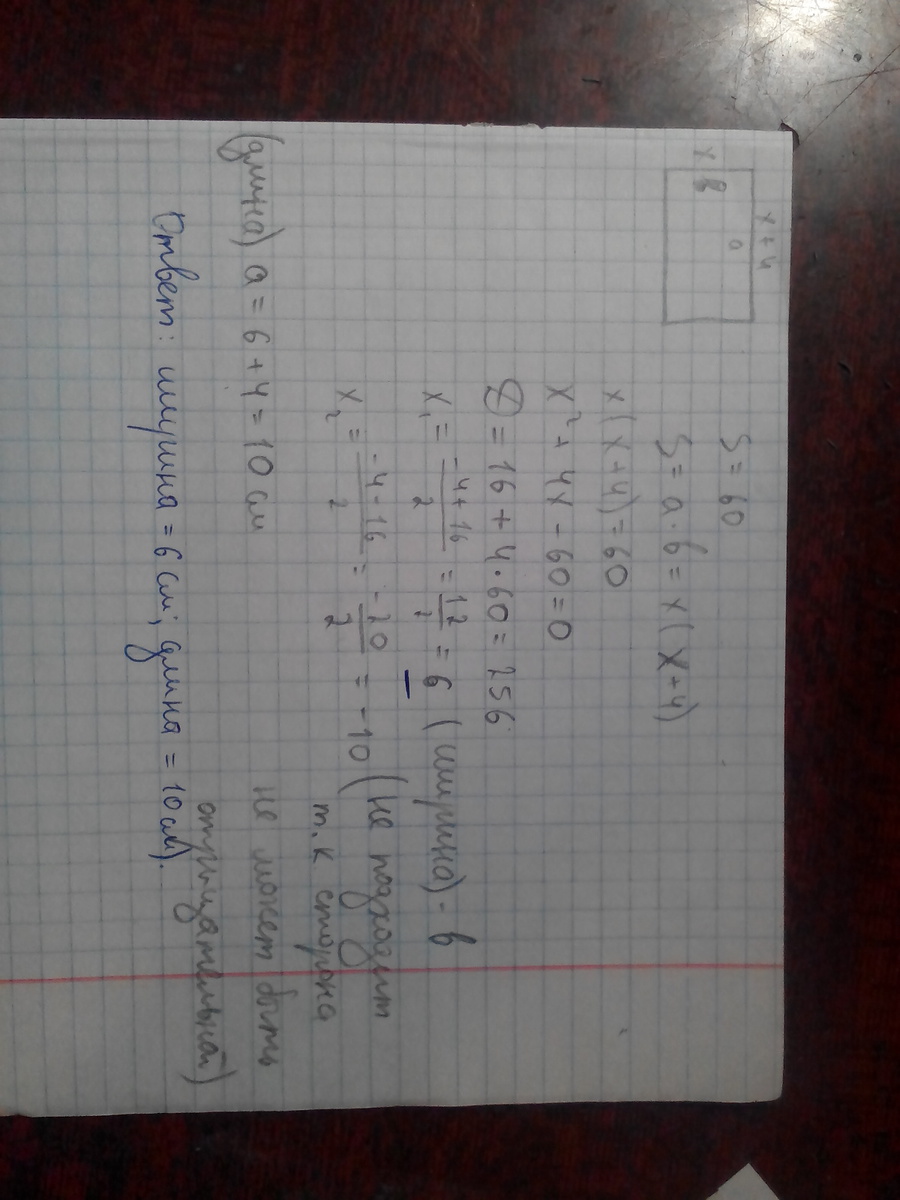 x+4
a
x в
S = 60
S = a · в = x(x+4)
x(x+4) = 60
x² + 4x − 60 = 0
D = 16 + 4·60 = 256
x₁ = (-4+16)/2 = 12/2 = 6 (ширина) - в
x₂ = (-4-16)/2 = -20/2 = -10 (не подходит
т.к сторона
не может быть
отрицательной)
(длина) a = 6 + 4 = 10 см
Ответ: ширина = 6 см; длина = 10 см).